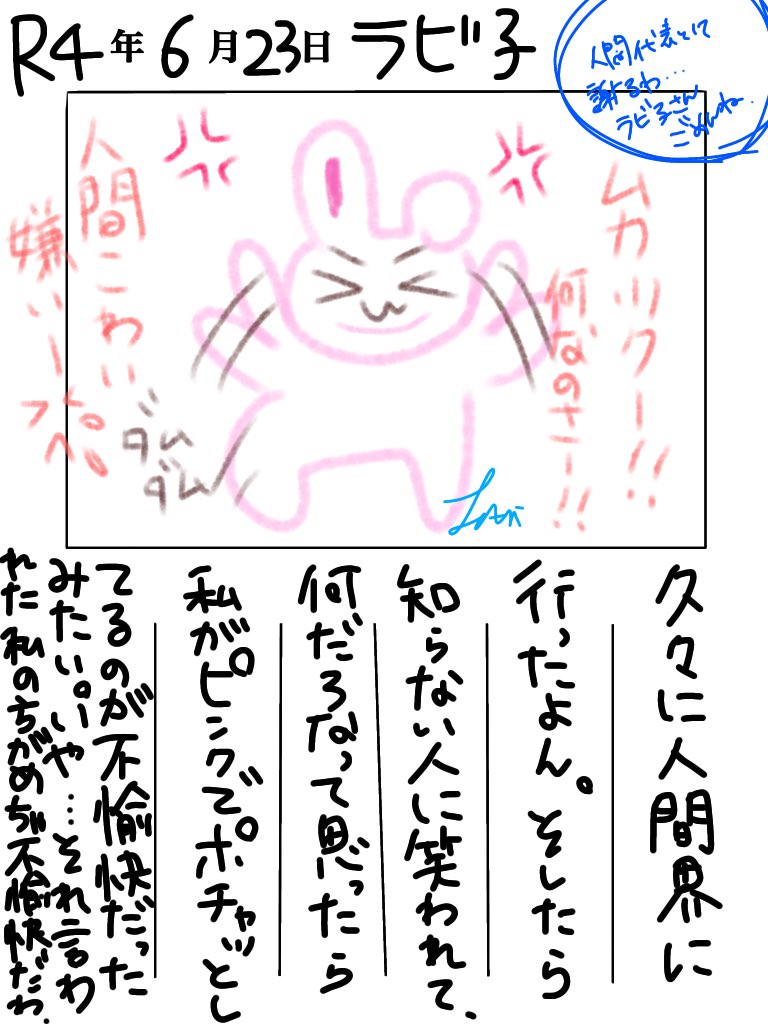 R4年6月23日 ラビ子
人間代表として
謝るわ…
ラビ子さん
ごめんね
ムカツクー!!
何なのさー!!
人間こわい
嫌いーペペ
ダム
ダム
久々に人間界に
行ったよん。そしたら
知らない人に笑われて、
何だろなって思ったら
私がピンクでポチャッとし
てるのが不愉快だった
みたい。いや…それ言わ
れた私のちがめちゃ不愉快だわ.